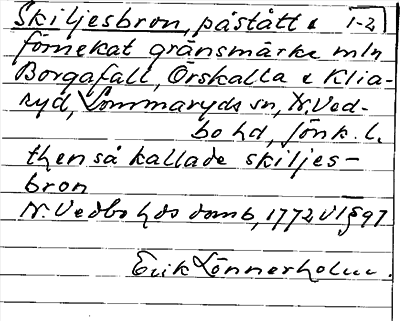 Skiljesbron, påstått &    1-2
förnekat gränsmärke mln
Borgafall, Örskalla & Klia-
ryd, Lommaryds sn, N. Ved-
bo hd, Jönk. l.
then så kallade skiljes-
bron
N. Vedbo hds domb, 1772 VI § 97
Erik Lönnerholm.